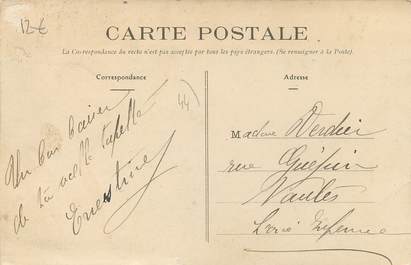 12€
CARTE POSTALE
La Correspondance du recto n'est pas acceptée par tous les pays étrangers. (Se renseigner à la Poste).
Correspondance
Adresse
44)
Un bon baiser
de ta
Ernestine
Madame Verdier
rue Guépin
Nantes
Loire Inférieure